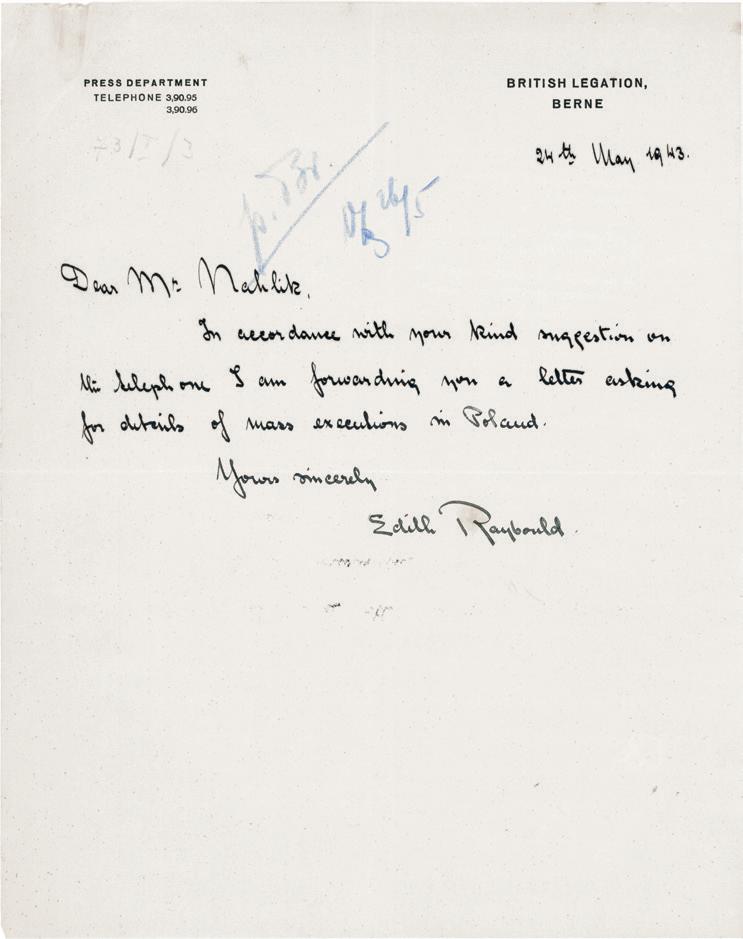 PRESS DEPARTMENT
TELEPHONE 3,90.95
3,90.96
BRITISH LEGATION,
BERNE
73/I/3
24th May 1943.
p. Br.
26/5
Dear Mr Nahlik,
In accordance with your kind suggestion on
the telephone I am forwarding you a letter asking
for details of mass executions in Poland.
Yours sincerely
Edith Raybould.